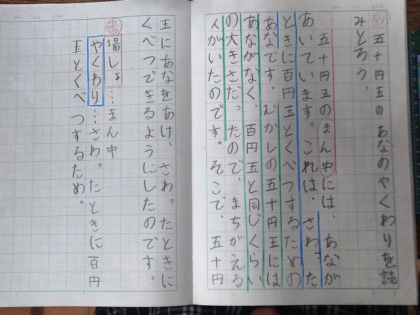 五十円玉のあなのやくわりを読
みとろう。
五十円玉のまん中には、あなが
あいています。これは、さわった
ときに百円玉とくべつするための
あなです。むかしの五十円玉には
あながなく、百円玉と同じくらい
の大きさだったので、まちがえる
人がいたのです。そこで、五十円
玉にあなをあけ、さわったときに
くべつできるようにしたのです。
場しょ…まん中
やくわり…さわったときに百円
玉とくべつするため。